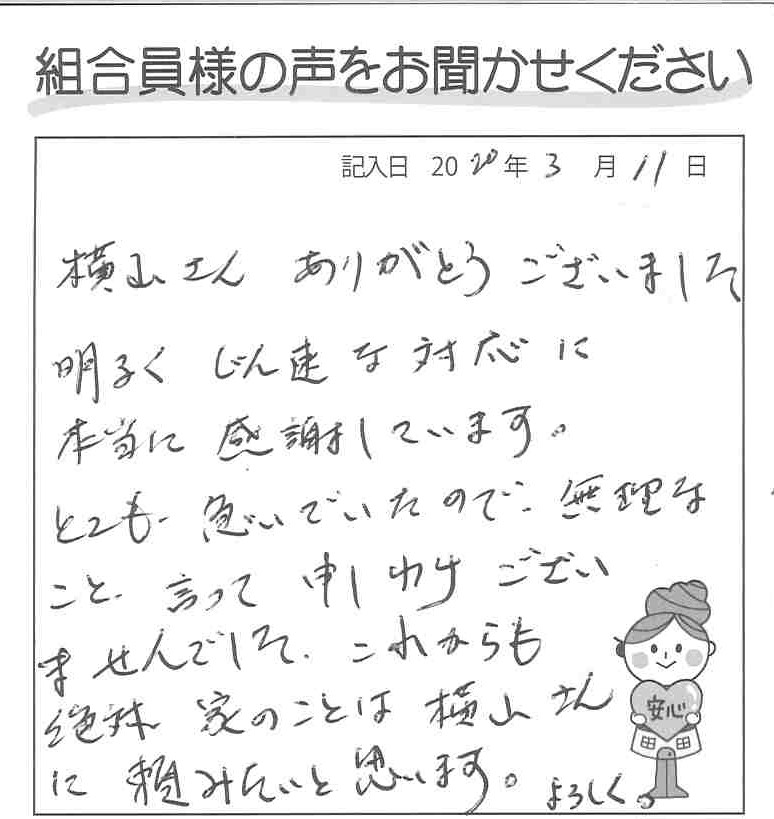 組合員様の声をお聞かせください
記入日 2020年3月11日
横山さん ありがとうございました
明るく じん速な対応に
本当に 感謝しています。
とても 急いでいたので、無理な
こと 言って 申しわけ ござい
ませんでした。これからも
絶対 家のことは 横山さん
に 頼みたいと思います。よろしく。
安心